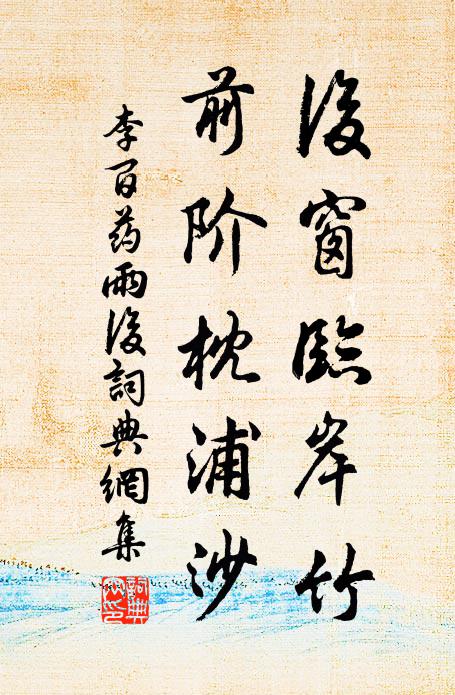 後窗臨岸竹
前阶枕浦沙
李百药雨後詞典網集